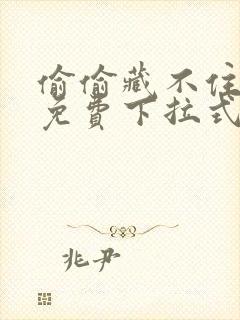 偷偷藏不住
免費下拉式
兆尹